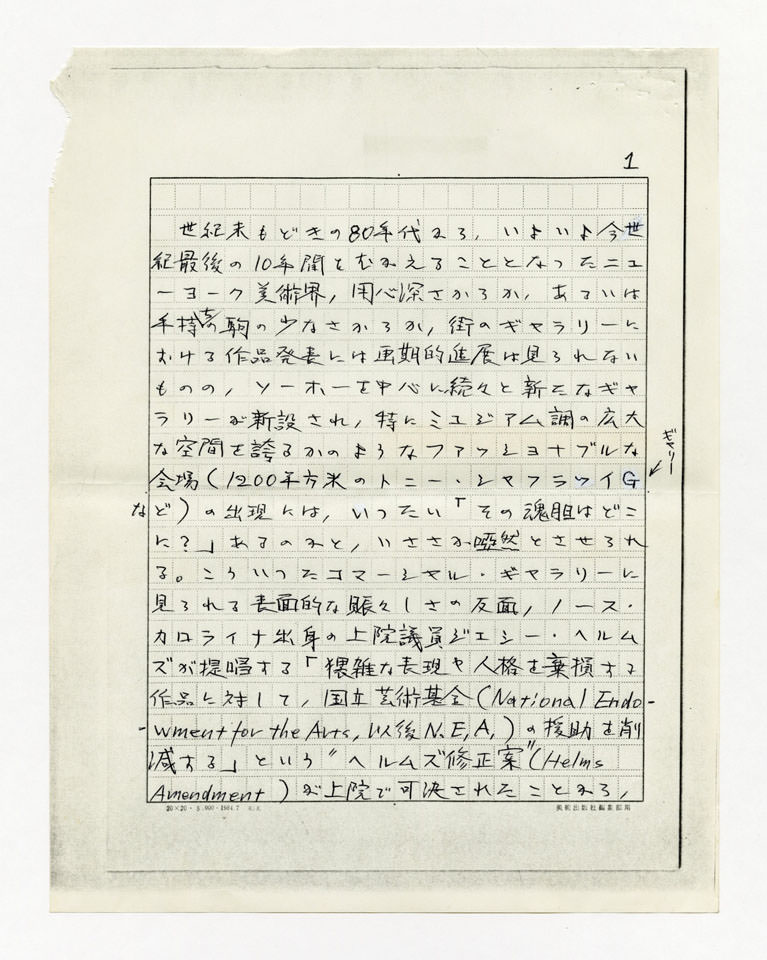 1
世紀末もどきの80年代から，いよいよ今世
紀最後の10年間をむかえることとなったニュ
ーヨーク美術界，用心深さからか，あるいは
手持ちの駒の少なさからか，街のギャラリーに
おける作品発表には画期的進展は見られない
ものの，ソーホーを中心に続々と新たなギャ
ラリーが新設され，特にミュジアム調の広大
な空間を誇るかのようなファッショナブルな
ギャラリー
会場（1200平方米のトニー・シャフラツイG
など）の出現には，いったい「その魂胆はどこ
に？」あるのかと，いささか唖然とさせられ
る。こういったコマーシャル・ギャラリーに
見られる表面的な賑々しさの反面，ノース・
カロライナ出身の上院議員ジェシー・ヘルム
ズが提唱する「猥雑な表現や人格を棄損する
作品に対して，国立芸術基金（National Endo-
-wment for the Arts, 以後N.E.A.）の援助を削
減する」という"ヘルムズ修正案"（Helms
Amendment）が上院で可決されたことから，
20×20・5,000・1984.7
美術出版社編集部用